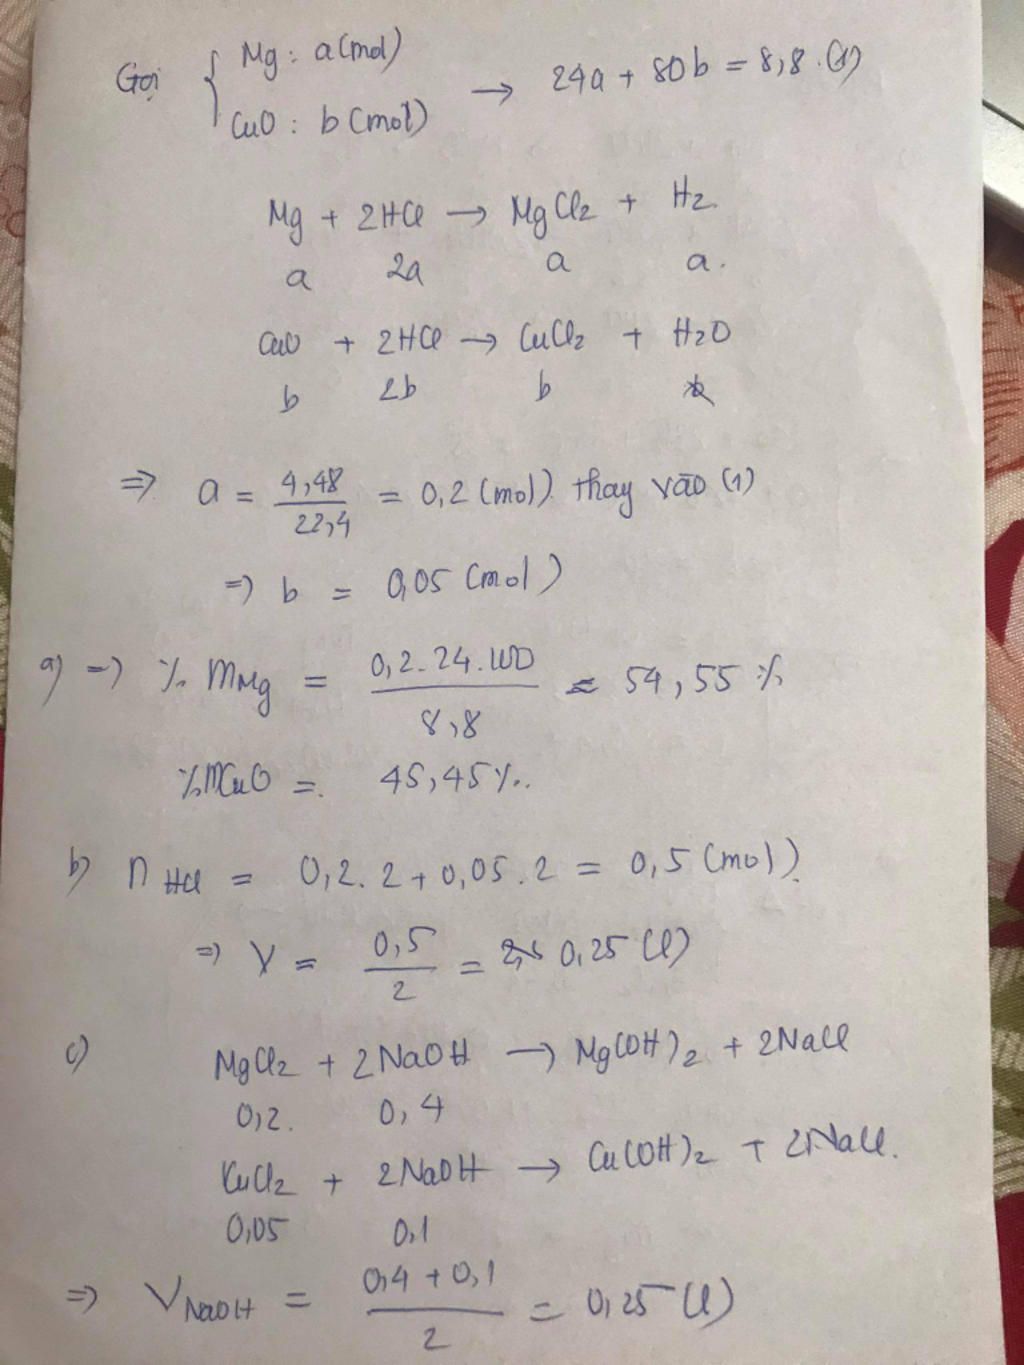 Gọi { Mg : a (mol)
CuO : b (mol) → 24a + 80b = 8,8. (1)
Mg + 2HCl → MgCl2 + H2
a 2a a a.
CuO + 2HCl → CuCl2 + H2O
b 2b b
=> a = 4,48 / 22,4 = 0,2 (mol) thay vào (1)
=> b = 0,05 (mol)
a) => % mMg = 0,2.24.100 / 8,8 = 54,55 %
% mCuO = 45,45%.
b) nHCl = 0,2.2 + 0,05.2 = 0,5 (mol).
=> V = 0,5 / 2 = 0,25 (l)
c) MgCl2 + 2NaOH → Mg(OH)2 + 2NaCl
0,2. 0,4
CuCl2 + 2NaOH → Cu(OH)2 + 2NaCl.
0,05 0,1
=> VNaOH = 0,4 + 0,1 / 2 = 0,25 (l)